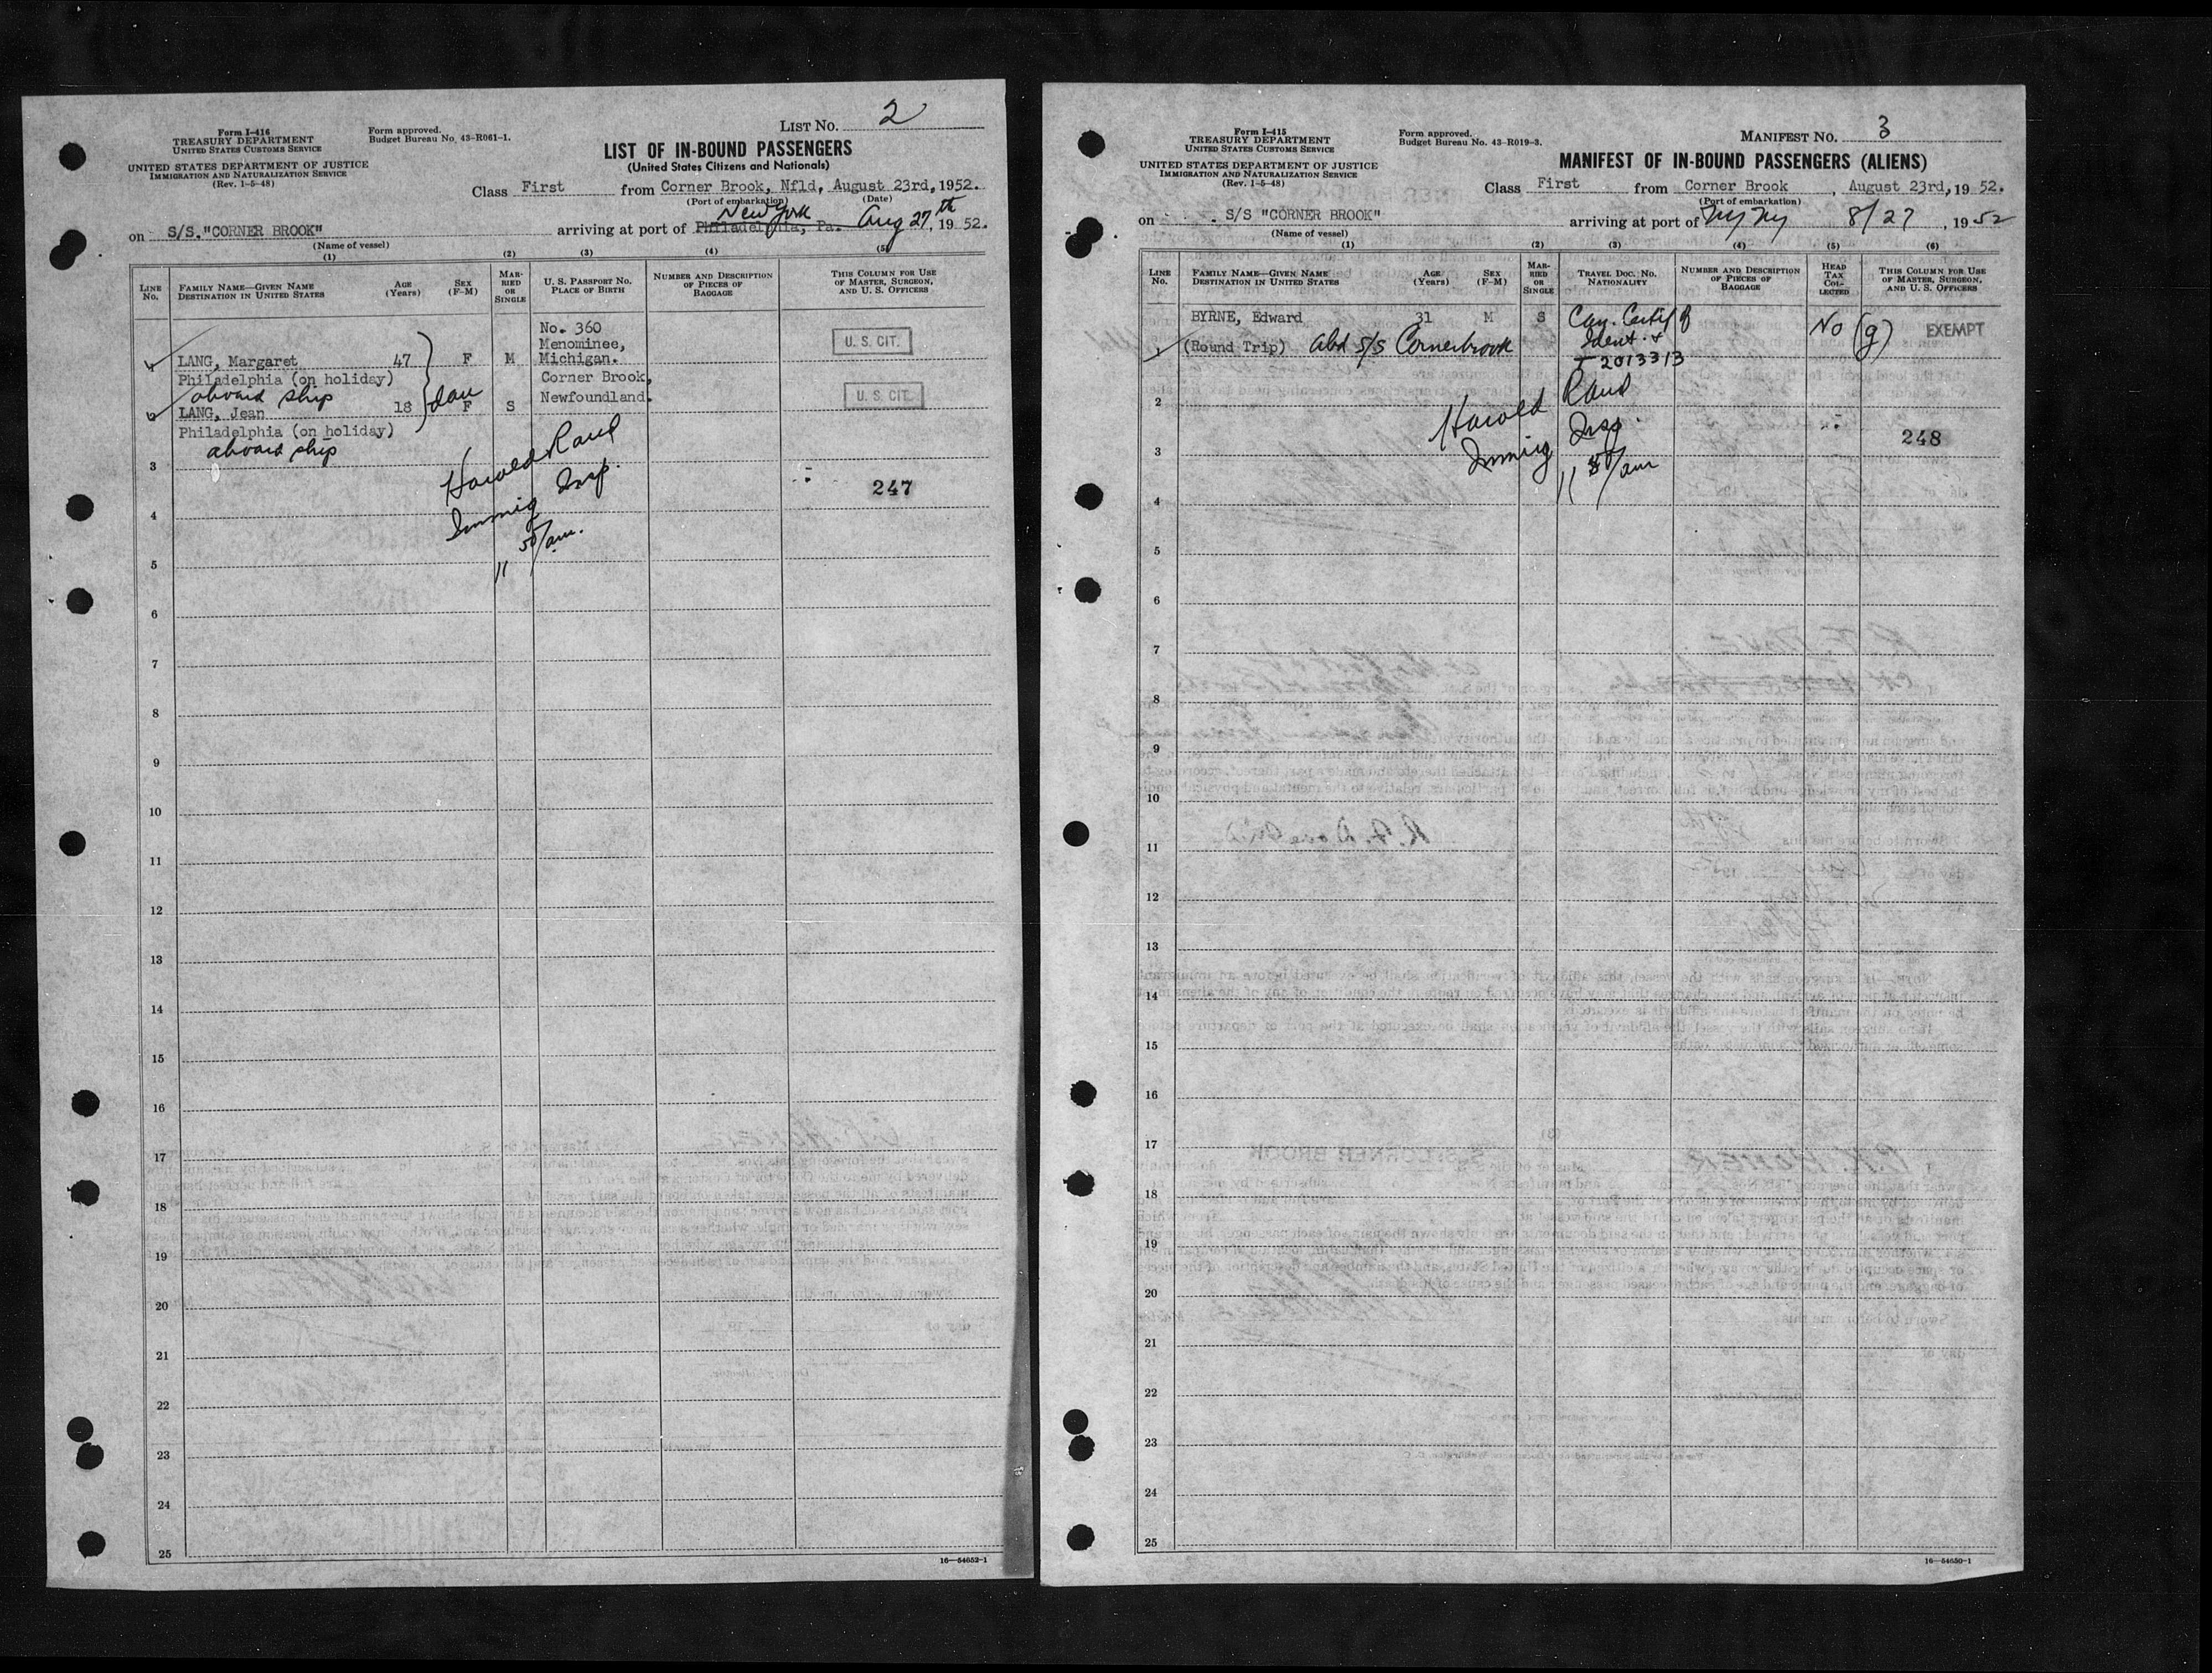 Form I-416
TREASURY DEPARTMENT
UNITED STATES CUSTOMS SERVICE
UNITED STATES DEPARTMENT OF JUSTICE
IMMIGRATION AND NATURALIZATION SERVICE
(Rev. 1-5-48)
Form approved.
Budget Bureau No. 43-R061-1.
LIST NO. 2
LIST OF IN-BOUND PASSENGERS
(United States Citizens and Nationals)
Class First from Corner Brook, Nfld, August 23rd, 1952.
(Port of embarkation) (Date)
New York
on S/S."CORNER BROOK" arriving at port of Philadelphia, Pa. Aug 27th, 1952.
(Name of vessel)
(1) (2) (3) (4) (5)
LINE No.
FAMILY NAME—GIVEN NAME
DESTINATION IN UNITED STATES
AGE (Years)
SEX (F-M)
MARRIED OR SINGLE
U. S. PASSPORT NO.
PLACE OF BIRTH
NUMBER AND DESCRIPTION OF PIECES OF BAGGAGE
THIS COLUMN FOR USE OF MASTER, SURGEON, AND U. S. OFFICERS
No. 360
Menominee,
1 LANG, Margaret 47 F M Michigan. U. S. CIT.
Philadelphia (on holiday) Corner Brook,
aboard ship Newfoundland.
2 LANG, Jean 18 dau F S U. S. CIT.
Philadelphia (on holiday)
aboard ship
Harold Rand
Immig Insp.
11 50/am.
247
3
4
5
6
7
8
9
10
11
12
13
14
15
16
17
18
19
20
21
22
23
24
25
16—54652-1
Form I-415
TREASURY DEPARTMENT
UNITED STATES CUSTOMS SERVICE
UNITED STATES DEPARTMENT OF JUSTICE
IMMIGRATION AND NATURALIZATION SERVICE
(Rev. 1-5-48)
Form approved.
Budget Bureau No. 43-R019-3.
MANIFEST NO. 3
MANIFEST OF IN-BOUND PASSENGERS (ALIENS)
Class First from Corner Brook, August 23rd, 1952.
(Port of embarkation)
on S/S "CORNER BROOK" arriving at port of NY NY 8/27, 1952
(Name of vessel)
(1) (2) (3) (4) (5) (6)
LINE No.
FAMILY NAME—GIVEN NAME
DESTINATION IN UNITED STATES
AGE (Years)
SEX (F-M)
MARRIED OR SINGLE
TRAVEL DOC. NO.
NATIONALITY
NUMBER AND DESCRIPTION OF PIECES OF BAGGAGE
HEAD TAX COLLECTED
THIS COLUMN FOR USE OF MASTER, SURGEON, AND U. S. OFFICERS
BYRNE, Edward 31 M S Can. Certif of No (g) EXEMPT
1 (Round Trip) abd S/S Cornerbrook Ident. +
2013313
Harold Rand
Immig Insp.
11 50/am
248
2
3
4
5
6
7
8
9
10
11
12
13
14
15
16
17
18
19
20
21
22
23
24
25
16—54650-1